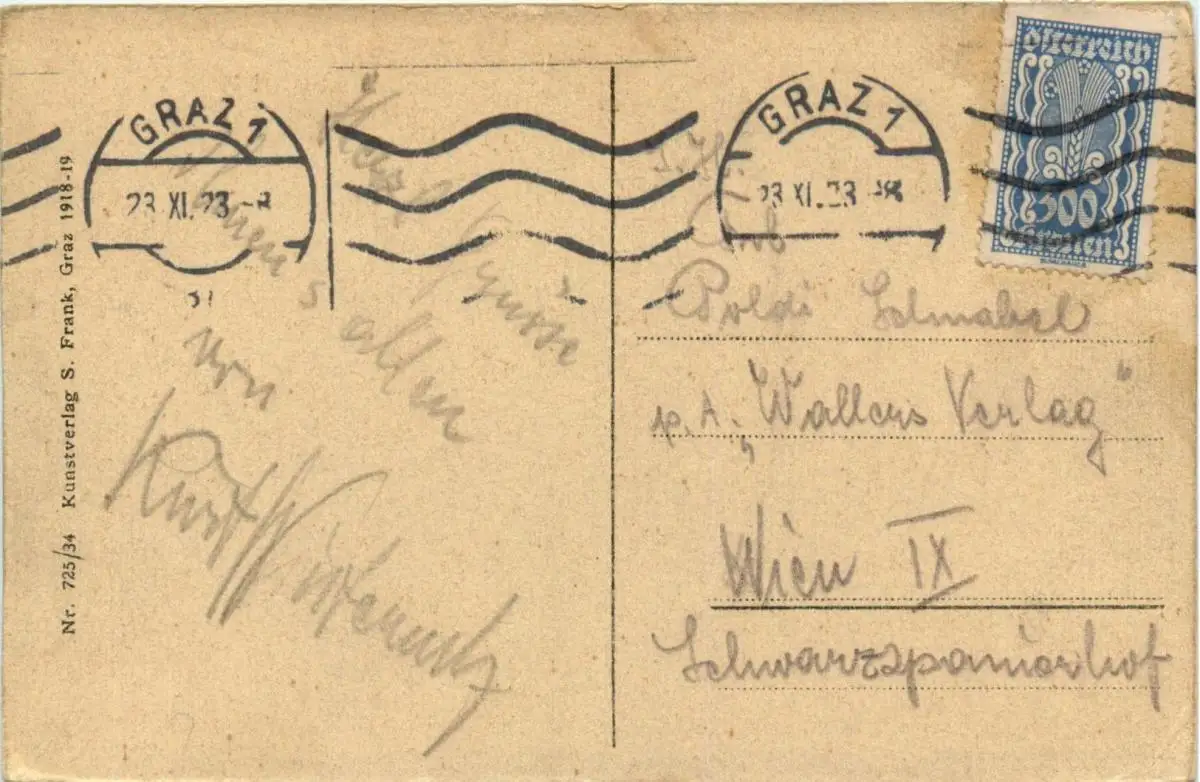 Nr. 725/34 Kunstverlag S. Frank, Graz 1918-19
GRAZ 1
23 XI. 23 -8
Herzl. Grüsse
Ihnen u. allen
von
Kurt
GRAZ 1
23 XI. 23 -8
Österreich
500
Kronen
Poldi Schnabel
p. A. „Wallers Verlag“
Wien IX
Schwarzspanierhof